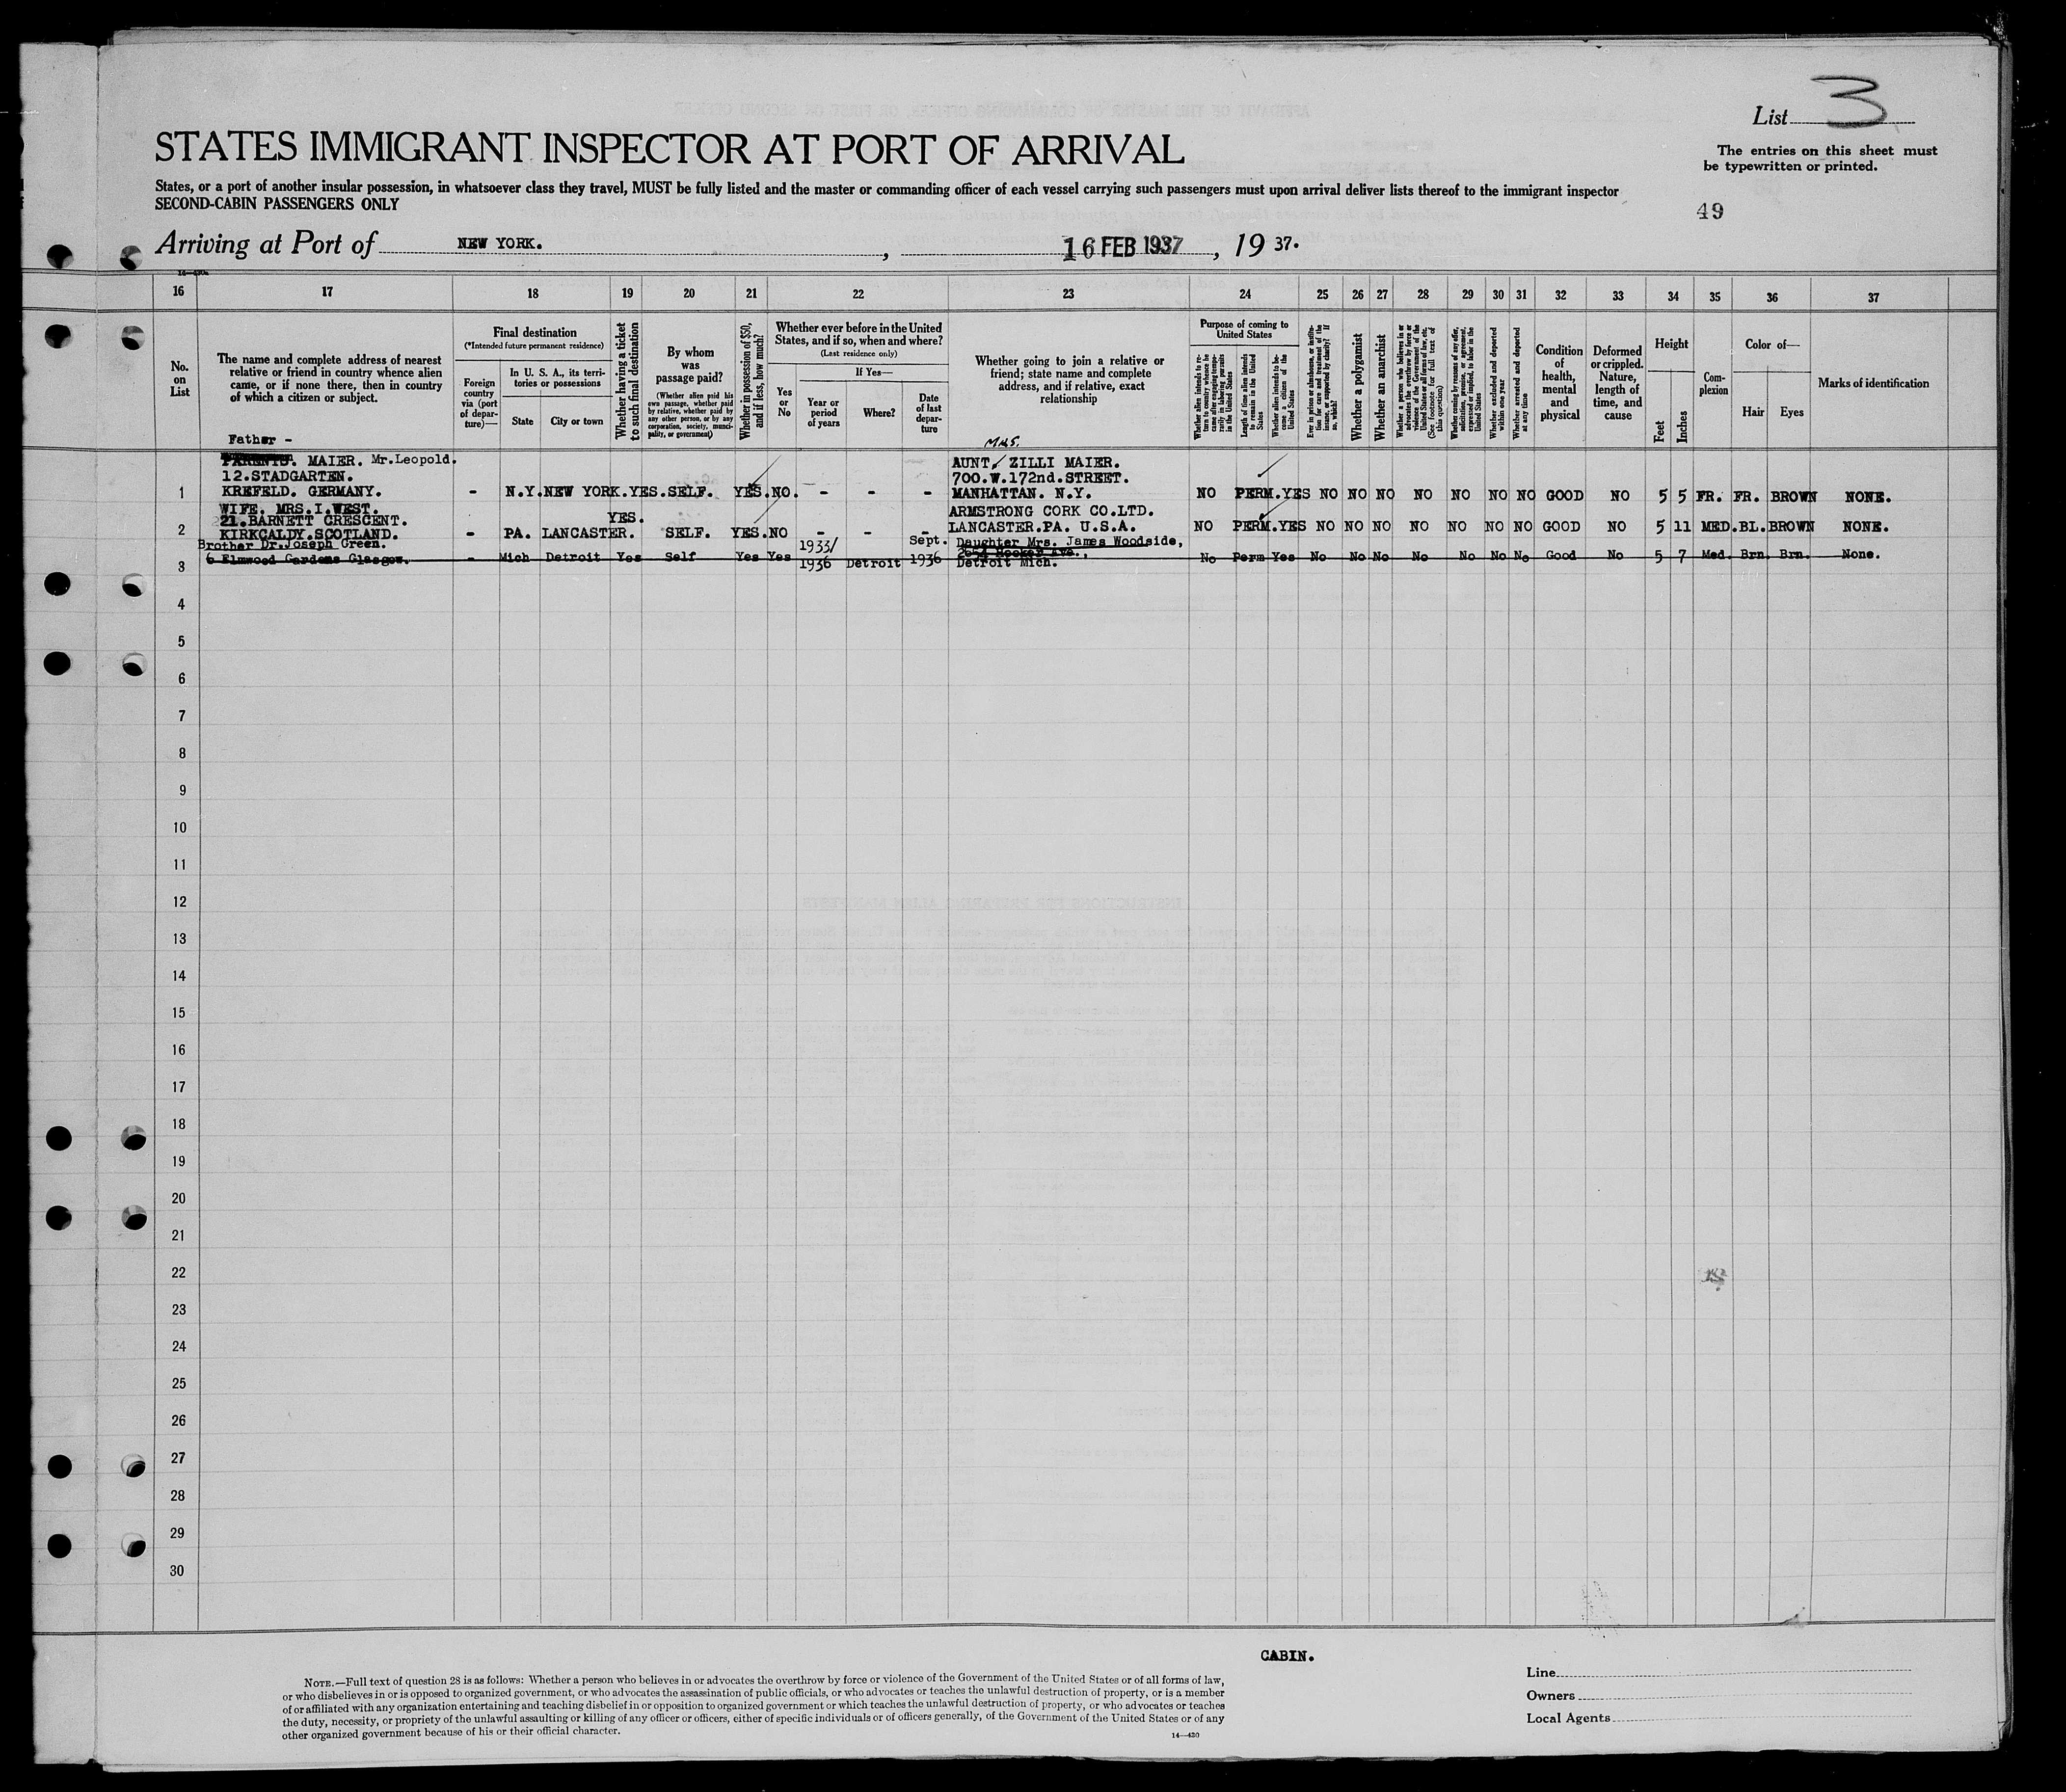 List 3
STATES IMMIGRANT INSPECTOR AT PORT OF ARRIVAL
The entries on this sheet must
be typewritten or printed.
States, or a port of another insular possession, in whatsoever class they travel, MUST be fully listed and the master or commanding officer of each vessel carrying such passengers must upon arrival deliver lists thereof to the immigrant inspector
SECOND-CABIN PASSENGERS ONLY
49
Arriving at Port of NEW YORK. , 16 FEB 1937 , 19 37.
16 17 18 19 20 21 22 23 24 25 26 27 28 29 30 31 32 33 34 35 36 37
No. on List
The name and complete address of nearest
relative or friend in country whence alien
came, or if none there, then in country
of which a citizen or subject.
Final destination
(*Intended future permanent residence)
Foreign country via (port of departure)—
In U. S. A., its territories or possessions
State
City or town
Whether having a ticket to such final destination
By whom was passage paid?
(Whether alien paid his own passage, whether paid by relative, whether paid by any other person, or by any corporation, society, municipality, or government)
Whether in possession of $50, and if less, how much?
Whether ever before in the United States, and if so, when and where?
(Last residence only)
Yes or No
If Yes—
Year or period of years
Where?
Date of last departure
Whether going to join a relative or
friend; state name and complete
address, and if relative, exact
relationship
Purpose of coming to United States
Whether alien intends to return to country whence he came after engaging temporarily in laboring pursuits in the United States
Length of time alien intends to remain in the United States
Whether alien intends to become a citizen of the United States
Ever in prison or almshouse, or institution for care and treatment of the insane, or supported by charity? If so, which?
Whether a polygamist
Whether an anarchist
Whether a person who believes in or advocates the overthrow by force or violence of the Government of the United States or all forms of law, etc. (See footnote for full text of this question)
Whether coming by reason of any offer, solicitation, promise, or agreement, expressed or implied, to labor in the United States
Whether excluded and deported within one year
Whether arrested and deported at any time
Condition of health, mental and physical
Deformed or crippled. Nature, length of time, and cause
Height
Feet
Inches
Complexion
Color of—
Hair
Eyes
Marks of identification
Father -
Mrs.
PARENTS. MAIER. Mr.Leopold.
12.STADGARTEN.
KREFELD. GERMANY.
AUNT, ZILLI MAIER.
700.W.172nd.STREET.
MANHATTAN. N.Y.
1 - N.Y. NEW YORK. YES. SELF. YES. NO. - - - NO PERM. YES NO NO NO NO NO NO NO GOOD NO 5 5 FR. FR. BROWN NONE.
WIFE. MRS.I.WEST.
21.BARNETT CRESCENT.
KIRKCALDY.SCOTLAND.
ARMSTRONG CORK CO.LTD.
LANCASTER.PA. U.S.A.
2 - PA. LANCASTER. YES. SELF. YES. NO - - - NO PERM. YES NO NO NO NO NO NO NO GOOD NO 5 11 MED. BL. BROWN NONE.
Brother Dr.Joseph Green.
6 Elmwood Gardens Glasgow.
Daughter Mrs. James Woodside,
Detroit Mich.
3 - Mich Detroit Yes Self Yes Yes 1933/1936 Detroit Sept. 1936 No Perm Yes No No No No No No No Good No 5 7 Med. Brn. Brn. None.
4
5
6
7
8
9
10
11
12
13
14
15
16
17
18
19
20
21
22
23
24
25
26
27
28
29
30
CABIN.
NOTE.—Full text of question 28 is as follows: Whether a person who believes in or advocates the overthrow by force or violence of the Government of the United States or of all forms of law,
or who disbelieves in or is opposed to organized government, or who advocates the assassination of public officials, or who advocates or teaches the unlawful destruction of property, or is a member
of or affiliated with any organization entertaining and teaching disbelief in or opposition to organized government or which teaches the unlawful destruction of property, or who advocates or teaches
the duty, necessity, or propriety of the unlawful assaulting or killing of any officer or officers, either of specific individuals or of officers generally, of the Government of the United States or of any
other organized government because of his or their official character.
14—430
Line
Owners
Local Agents